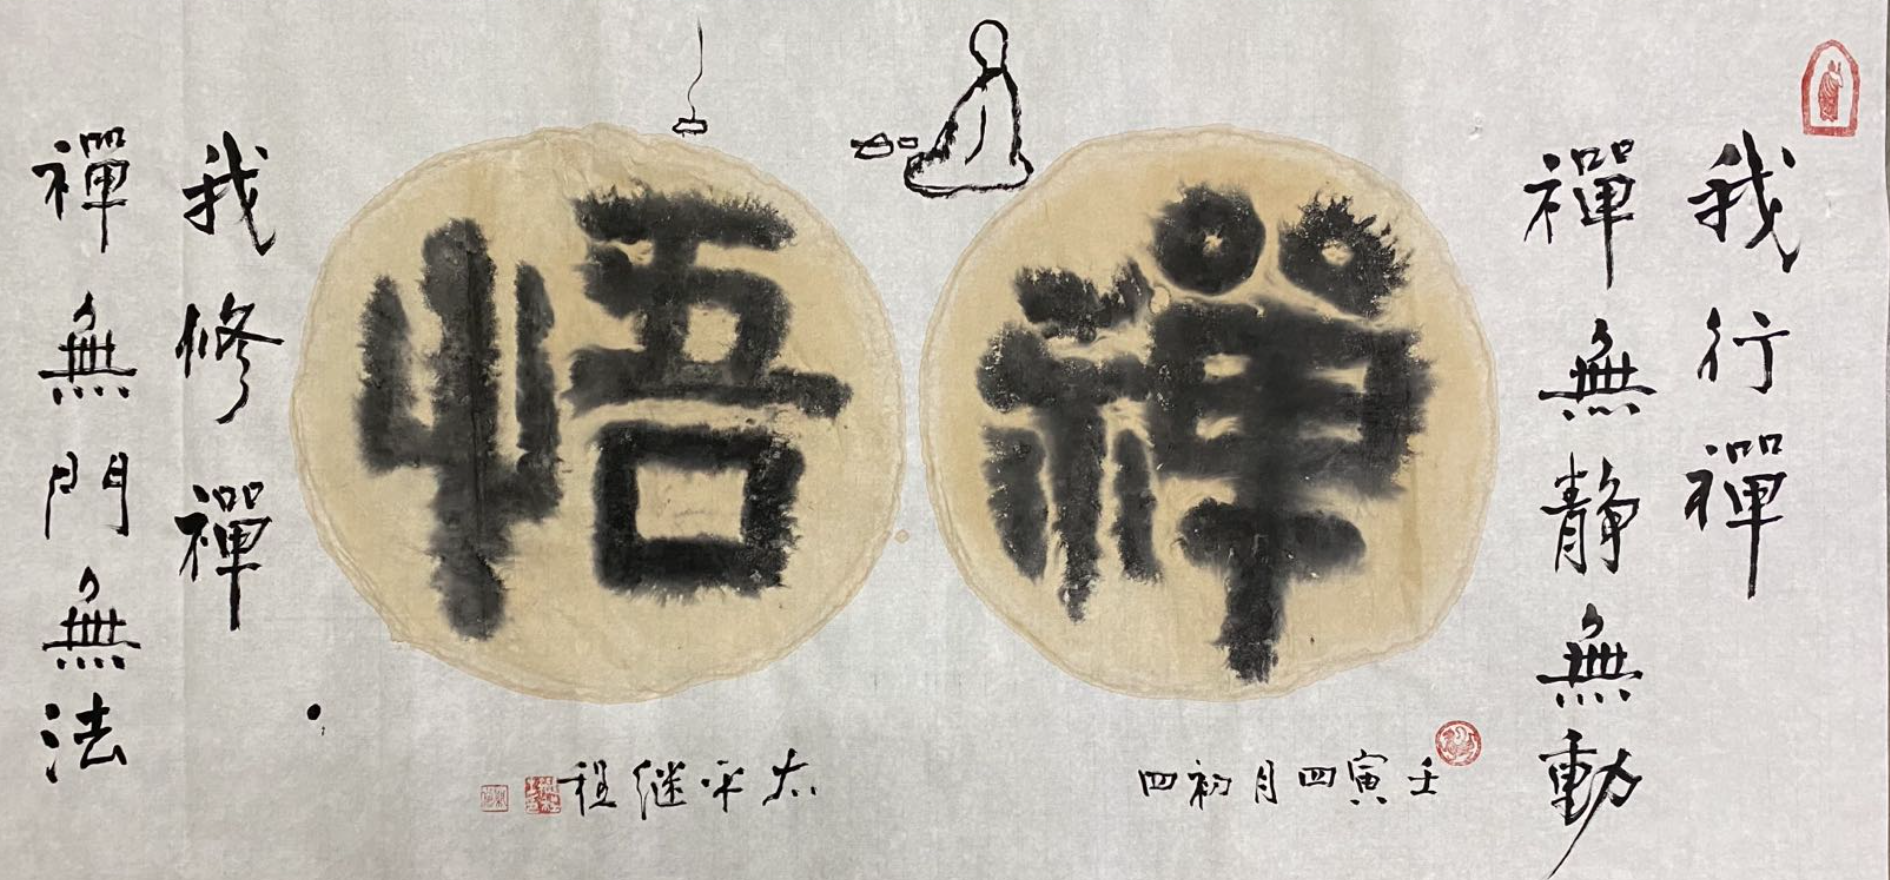 我行禪
禪無静無動
禪悟
我修禪
禪無門無法
壬寅四月初四
太平继祖